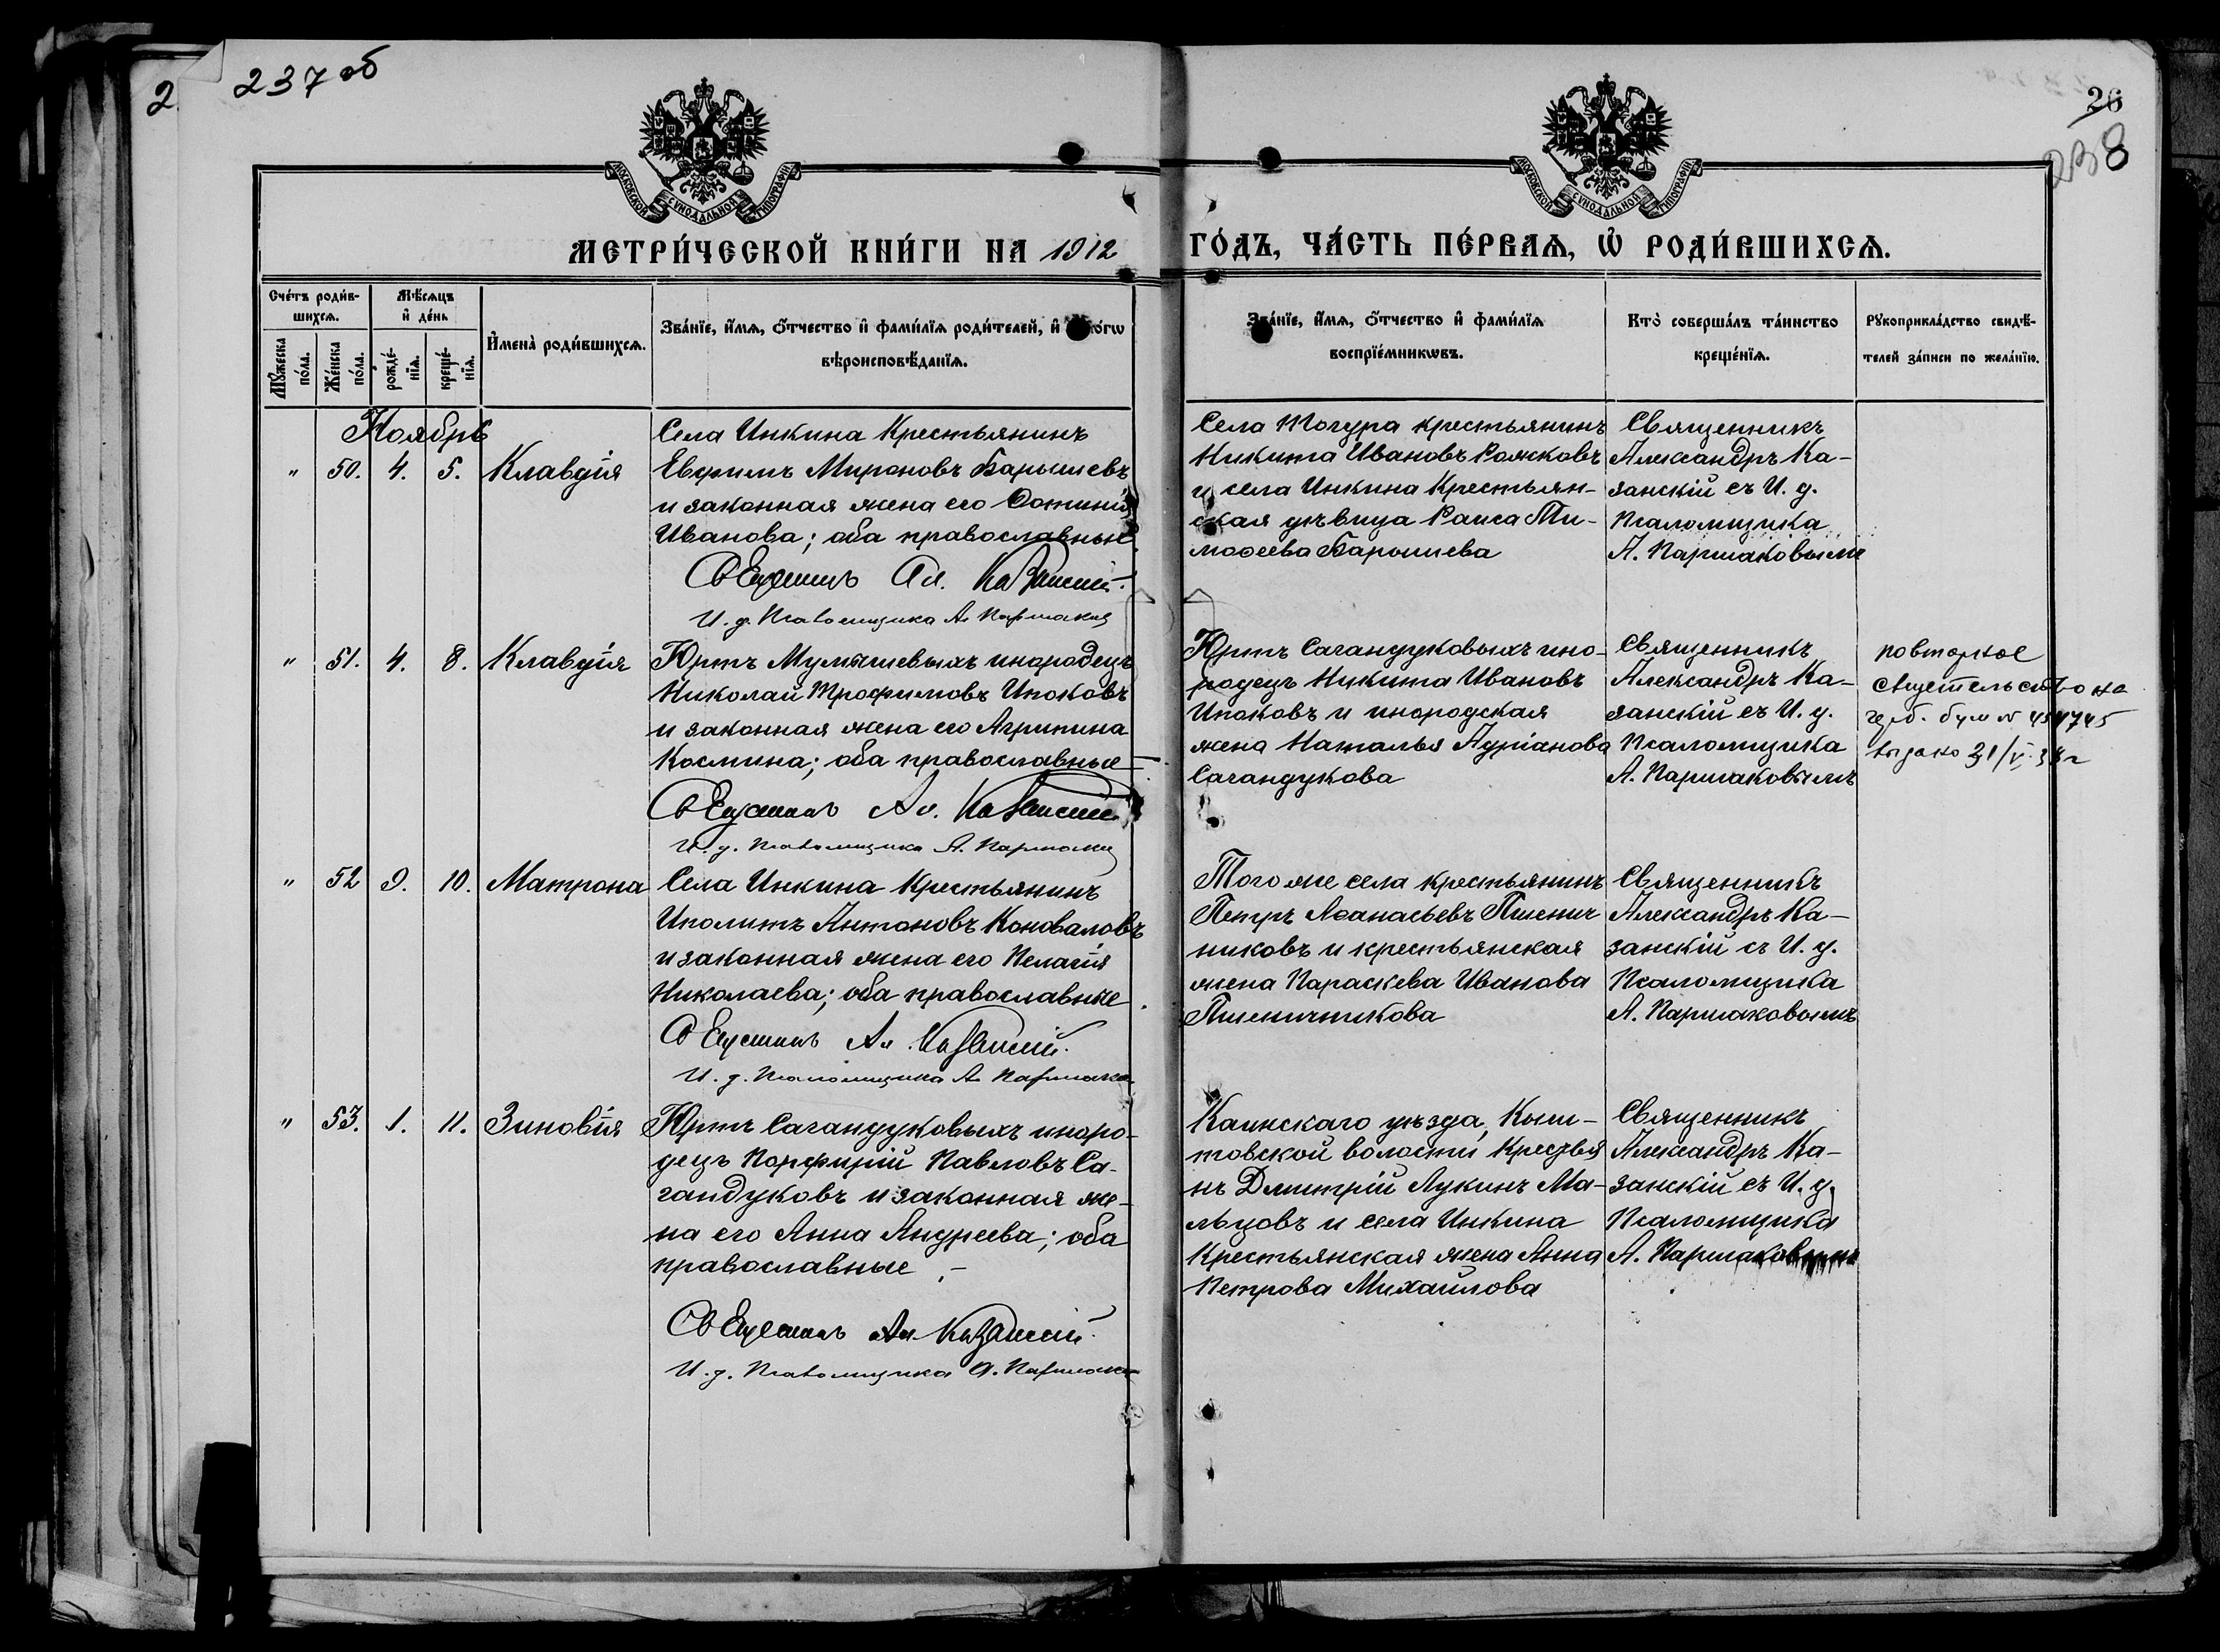 237 об
2
26
238
МОСКОВСКОЙ СѴНОДАЛЬНОЙ ТИПОГРАФІИ
МОСКОВСКОЙ СѴНОДАЛЬНОЙ ТИПОГРАФІИ
МЕТРИ́ЧЕСКОЙ КНИ́ГИ НА 1912
ГО́ДЪ, ЧА́СТЬ ПЕ́РВАѦ, Ѽ РОДИ́ВШИХСѦ.
Сче́тъ роди́в-
шихсѧ.
Мѣ́сѧцъ
и҆ де́нь
Мꙋ́жеска
по́ла.
Же́нска
по́ла.
рожде́-
нїѧ.
креще́-
нїѧ.
И҆мена̀ роди́вшихсѧ.
Зва́нїе, и҆́мѧ, ѻ҆́тчество и҆ фами́лїѧ роди́телей, и҆
вѣроисповѣ́данїѧ.
Зва́нїе, и҆́мѧ, ѻ҆́тчество и҆ фами́лїѧ
воспрїе́мникѡвъ.
Кто̀ соверша́лъ та́инство
креще́нїѧ.
Рꙋкоприкла́дство свидѣ́-
телей за́писи по жела́нїю.
Ноябрь
" 50. 4. 5. Клавдія
Села Инкина Крестьянинъ
Евфимъ Мироновъ Барышевъ
и законная жена его Фотинія
Иванова; оба православные
Священникъ Ал. Казанскій.
И. д. Псаломщика А. Паршаков
Села Тогура крестьянинъ
Никита Ивановъ Рожковъ
и села Инкина Крестьян-
ская дѣвица Раиса Ти-
моѳеева Барышева
Священникъ
Александръ Ка-
занскій съ И. д.
Псаломщика
А. Паршаковымъ
" 51. 4. 8. Клавдія
Юртъ Мумышевыхъ инородецъ
Николай Трофимовъ Ипоковъ
и законная жена его Агрипина
Космина; оба православные
Священникъ Ал. Казанскій
И. д. Псаломщика А. Паршаков
Юртъ Сагандуковыхъ ино-
родецъ Никита Ивановъ
Ипоковъ и инородская
жена Наталья Адріанова
Сагандукова
Священникъ
Александръ Ка-
занскій съ И. д.
Псаломщика
А. Паршаковымъ
повторное
свидетельство на
герб. бум №
выдано
" 52 9. 10. Матрона
Села Инкина Крестьянинъ
Иполитъ Антоновъ Коноваловъ
и законная жена его Пелагія
Николаева; оба православные
Священникъ Ал. Казанскій.
И. д. Псаломщика А. Паршаков
Того же села крестьянинъ
Петръ Аѳанасьевъ Пшенич
никовъ и крестьянская
жена Параскева Иванова
Пшеничникова
Священникъ
Александръ Ка-
занскій съ И. д.
Псаломщика
А. Паршаковымъ
" 53. 1. 11. Зиновія
Юртъ Сагандуковыхъ иноро-
децъ Порфирій Павловъ Са-
гандуковъ и законная же-
на его Анна Андреева; оба
православные. –
Священникъ Ал. Казанскій.
И. д. Псаломщика А. Паршаков
Каинскаго уѣзда, Кыш-
товской волости Крестья
нъ Дмитрій Лукинъ Ма-
льцовъ и села Инкина
Крестьянская жена Анна
Петрова Михайлова
Священникъ
Александръ Ка-
занскій съ И. д.
Псаломщика
А. Паршаковымъ